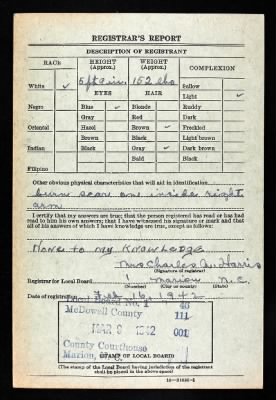 REGISTRAR'S REPORT
DESCRIPTION OF REGISTRANT
RACE
HEIGHT (Approx.)
WEIGHT (Approx.)
COMPLEXION
White ✓
5 ft 9 in.
152 lbs
Sallow
EYES
HAIR
Light ✓
Negro
Blue ✓
Blonde
Ruddy
Gray
Red
Dark
Oriental
Hazel
Brown ✓
Freckled
Brown
Black
Light brown
Indian
Black
Gray
Dark brown
Bald
Black
Filipino
Other obvious physical characteristics that will aid in identification
burn scar on inside right
arm
I certify that my answers are true; that the person registered has read or has had
read to him his own answers; that I have witnessed his signature or mark and that
all of his answers of which I have knowledge are true, except as follows:
None to my Knowledge
Mrs Charles W. Harris
(Signature of registrar)
Registrar for Local Board
Marion N.C.
(Number) (City or county) (State)
Date of registration Feb 16, 1942
Local Board No. 1 48
McDowell County 111
MAR 9 1942 001
County Courthouse
Marion,
(STAMP OF LOCAL BOARD)
(The stamp of the Local Board having jurisdiction of the registrant
shall be placed in the above space)